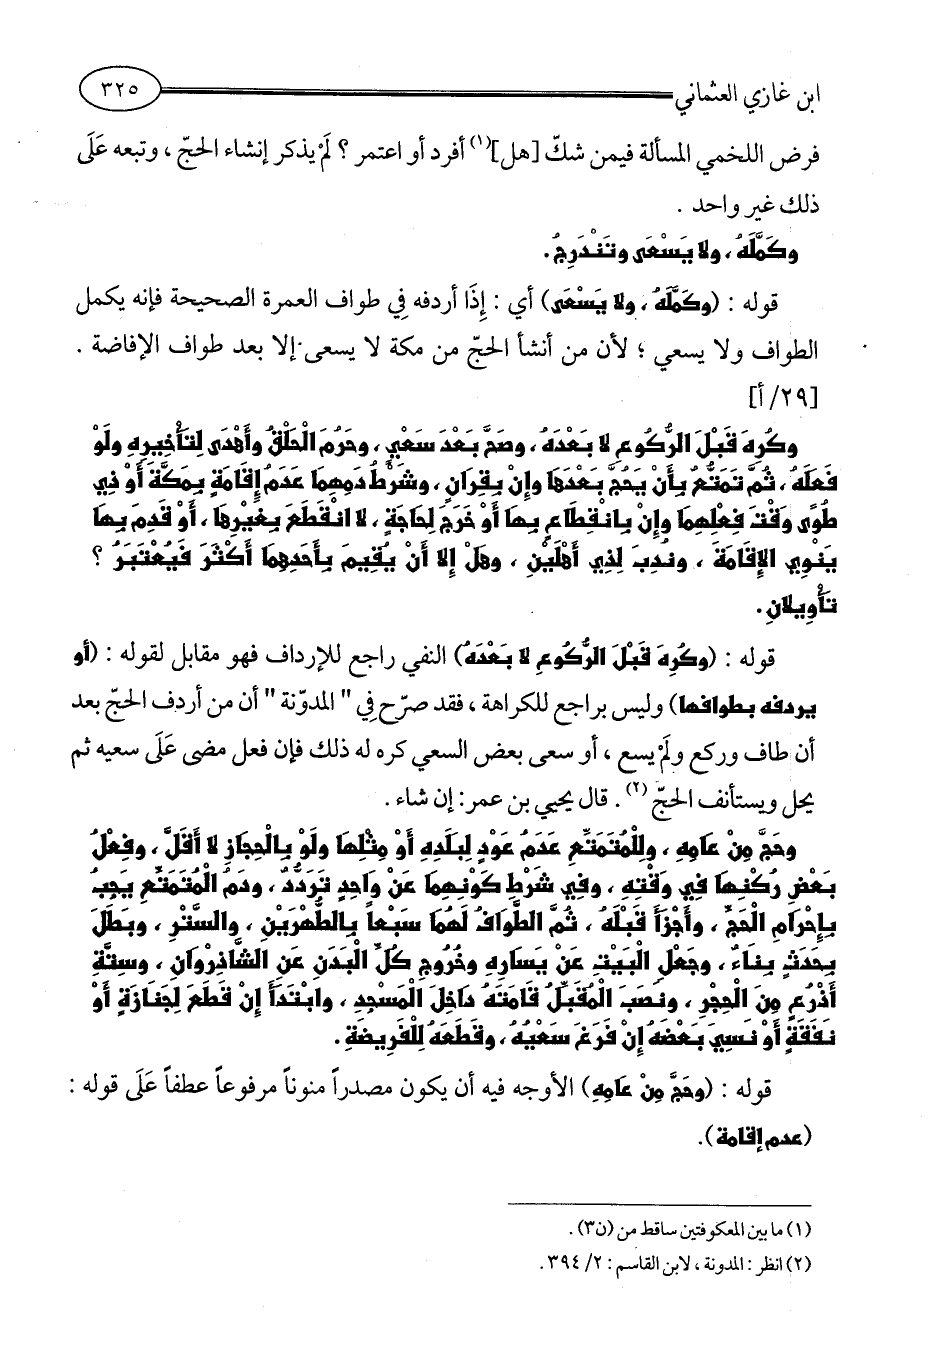 ابن غازي العثماني ٣٢٥
فرض اللخمي المسألة فيمن شكّ [هل](١) أفرد أو اعتمر ؟ لَمْ يذكر إنشاء الحجّ ، وتبعه عَلَى
ذلك غير واحد .
وكَمَّلَهُ ، ولا يَسْعَى وتَنْدَرِجُ.
قوله : (وكَمَّلَهُ ، ولا يَسْعَى) أي : إِذَا أردفه فِي طواف العمرة الصحيحة فإنه يكمل
الطواف ولا يسعي ؛ لأن من أنشأ الحجّ من مكة لا يسعى إلا بعد طواف الإفاضة .
[٢٩/ أ]
وكُرِهَ قَبْلَ الرُّكُوعِ لا بَعْدَهُ ، وصَحَّ بَعْدَ سَعْيٍ ، وحَرُمَ الْحَلْقُ وأَهْدَى لِتَأْخِيرِهِ ولَوْ
فَعَلَهُ ، ثُمَّ تَمَتُّعٌ بِأَنْ يَحُجَّ بَعْدَهَا وإِنْ بِقِرَانٍ ، وشَرْطُ دَمِهِمَا عَدَمُ إِقَامَةٍ بِمَكَّةَ أَوْ ذِي
طُوًى وقْتَ فِعْلِهِمَا وإِنْ بِانْقِطَاعٍ بِهَا أَوْ خَرَجَ لِحَاجَةٍ ، لا انْقَطَعَ بِغَيْرِهَا ، أَوْ قَدِمَ بِهَا
يَنْوِي الإِقَامَةَ ، ونُدِبَ لِذِي أَهْلَيْنِ ، وهَلْ إِلا أَنْ يُقِيمَ بِأَحَدِهِمَا أَكْثَرَ فَيُعْتَبَرُ ؟
تَأْوِيلانِ.
قوله : (وكُرِهَ قَبْلَ الرُّكُوعِ لا بَعْدَهُ) النفي راجع للإرداف فهو مقابل لقوله : (أو
يردفه بطوافها) وليس براجع للكراهة ، فقد صرّح فِي " المدوّنة " أن من أردف الحجّ بعد
أن طاف وركع ولَمْ يسع ، أو سعى بعض السعي كره له ذلك فإن فعل مضى عَلَى سعيه ثم
يحل ويستأنف الحجّ (٢). قال يحيي بن عمر: إن شاء .
وحَجَّ مِنْ عَامِهِ ، ولِلْمُتَمَتِّعِ عَدَمُ عَوْدٍ لِبَلَدِهِ أَوْ مِثْلِهَا ولَوْ بِالْحِجَازِ لا أَقَلَّ ، وفِعْلُ
بَعْضِ رُكْنِهَا فِي وقْتِهِ ، وفِي شَرْطِ كَوْنِهِمَا عَنْ وَاحِدٍ تَرَدُّدٌ ، ودَمُ الْمُتَمَتِّعِ يَجِبُ
بِإِحْرَامِ الْحَجِّ ، وأَجْزَأَ قَبْلَهُ ، ثُمَّ الطَّوَافُ لَهُمَا سَبْعاً بِالطُّهْرَيْنِ ، والسَّتْرِ ، وبَطَلَ
بِحَدَثٍ بِنَاءٌ ، وجَعْلِ الْبَيْتِ عَنْ يَسَارِهِ وخُرُوجِ كُلِّ الْبَدَنِ عَنِ الشَّاذِرْوَانِ ، وسِتَّةِ
أَذْرُعٍ مِنَ الْحِجْرِ ، ونَصَبَ الْمُقَبِّلُ قَامَتَهُ دَاخِلَ الْمَسْجِدِ ، وابْتَدَأَ إِنْ قَطَعَ لِجَنَازَةٍ أَوْ
نَفَقَةٍ أَوْ نَسِيَ بَعْضَهُ إِنْ فَرَغَ سَعْيُهُ ، وقَطَعَهُ لِلْفَرِيضَةِ.
قوله : (وحَجَّ مِنْ عَامِهِ) الأوجه فيه أن يكون مصدراً منوناً مرفوعاً عطفاً عَلَى قوله :
(عدم إقامة).
(١) ما بين المعكوفتين ساقط من (ن٣) .
(٢) انظر : المدونة ، لابن القاسم : ٢/ ٣٩٤ .